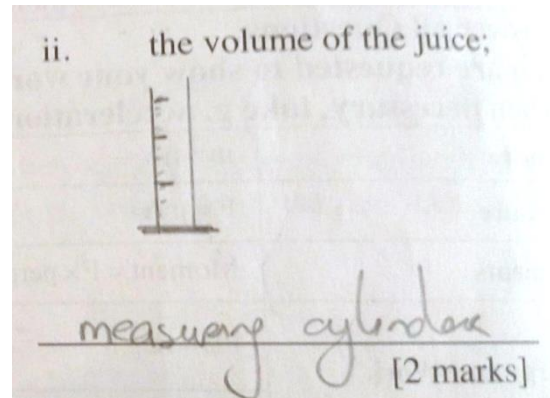 ii. the volume of the juice;
measuring cylinder
[2 marks]